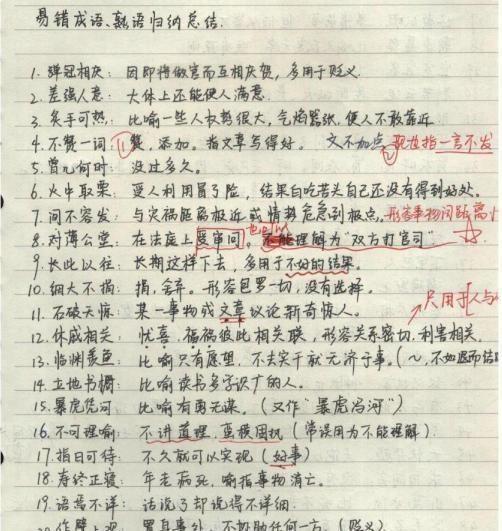 易错成语、熟语归纳总结.
1. 弹冠相庆: 因即将做官而互相庆贺, 多用于贬义.
2. 差强人意: 大体上还能使人满意.
3. 炙手可热: 比喻一些人权势很大, 气焰嚣张, 使人不敢靠近
4. 不赞一词: ①赞, 添加. 指文章写得好. 文不加点 ②现也指一言不发
5. 曾几何时: 没过多久.
6. 火中取栗: 受人利用冒了险, 结果白吃苦头自己还没有得到好处.
7. 间不容发: 与灾祸距离极近或情势危急到极点. 形容事物间距离小
8. 对薄公堂: 在法庭上受审问. 理解为"双方打官司"
9. 长此以往: 长期这样下去, 多用于不好的结果.
10. 细大不捐: 捐, 舍弃. 形容包罗一切, 没有选择.
11. 石破天惊: 某一事物或文章议论新奇惊人. 只用于人与
12. 休戚相关: 忧喜、福祸彼此相关联, 形容关系密切, 利害相关.
13. 临渊羡鱼: 比喻只有愿望, 不去实干就无济于事. (~, 不如退而结
14. 立地书橱: 比喻读书多学识广的人.
15. 暴虎凭河: 比喻有勇无谋. (又作"暴虎冯河")
16. 不可理喻: 不讲道理, 蛮横固执 (常误用为不能理解).
17. 指日可待: 不久就可以实现 (好事)
18. 寿终正寝: 年老病死, 喻指事物消亡.
19. 语焉不详: 话说了却说得不详细.
20. 作壁上观: 置身事外, 不协助任何一方. (贬义)